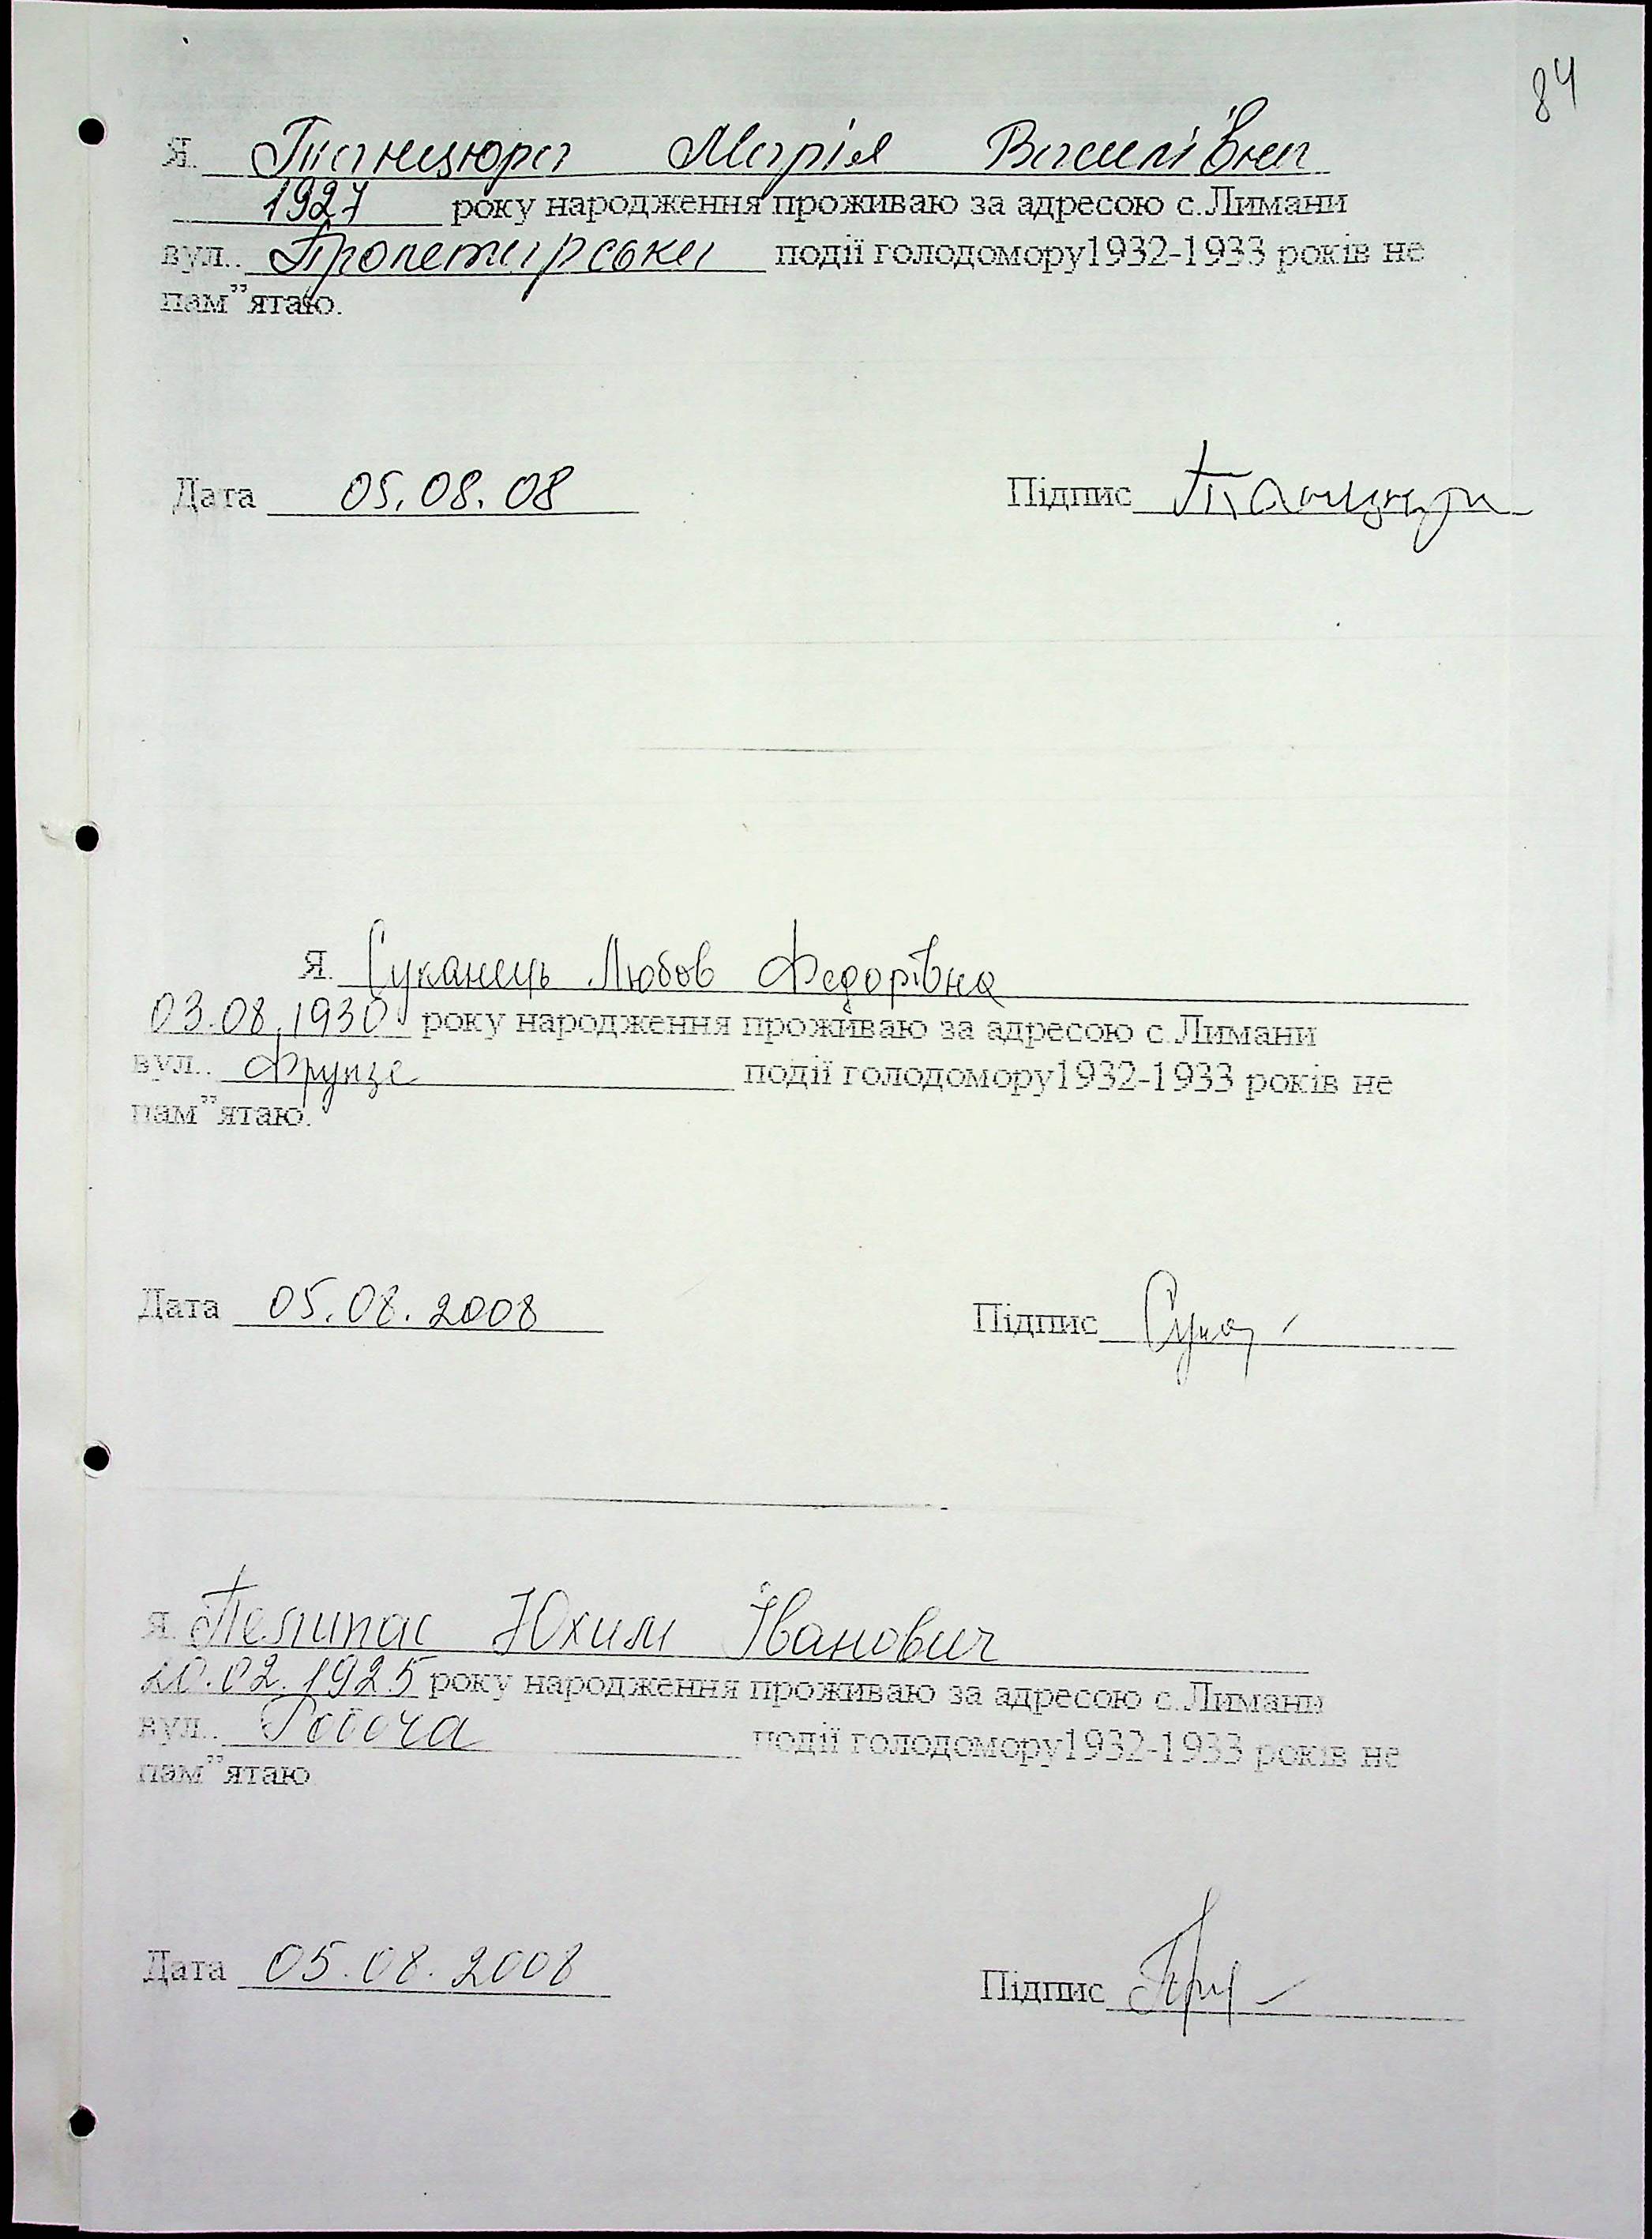 84
Я. Танцюра Марія Василівна
1927 року народження проживаю за адресою с.Лимани
вул.. Пролетарська події голодомору1932-1933 років не
пам”ятаю.
Дата 05.08.08 Підпис Танцюра
Я. Суканець Любов Федорівна
03.08.1930 року народження проживаю за адресою с.Лимани
вул.. Фрунзе події голодомору1932-1933 років не
пам”ятаю.
Дата 05.08.2008 Підпис
Я. Пелипас Юхим Іванович
20.02.1925 року народження проживаю за адресою с.Лимани
вул.. Робоча події голодомору1932-1933 років не
пам”ятаю
Дата 05.08.2008 Підпис